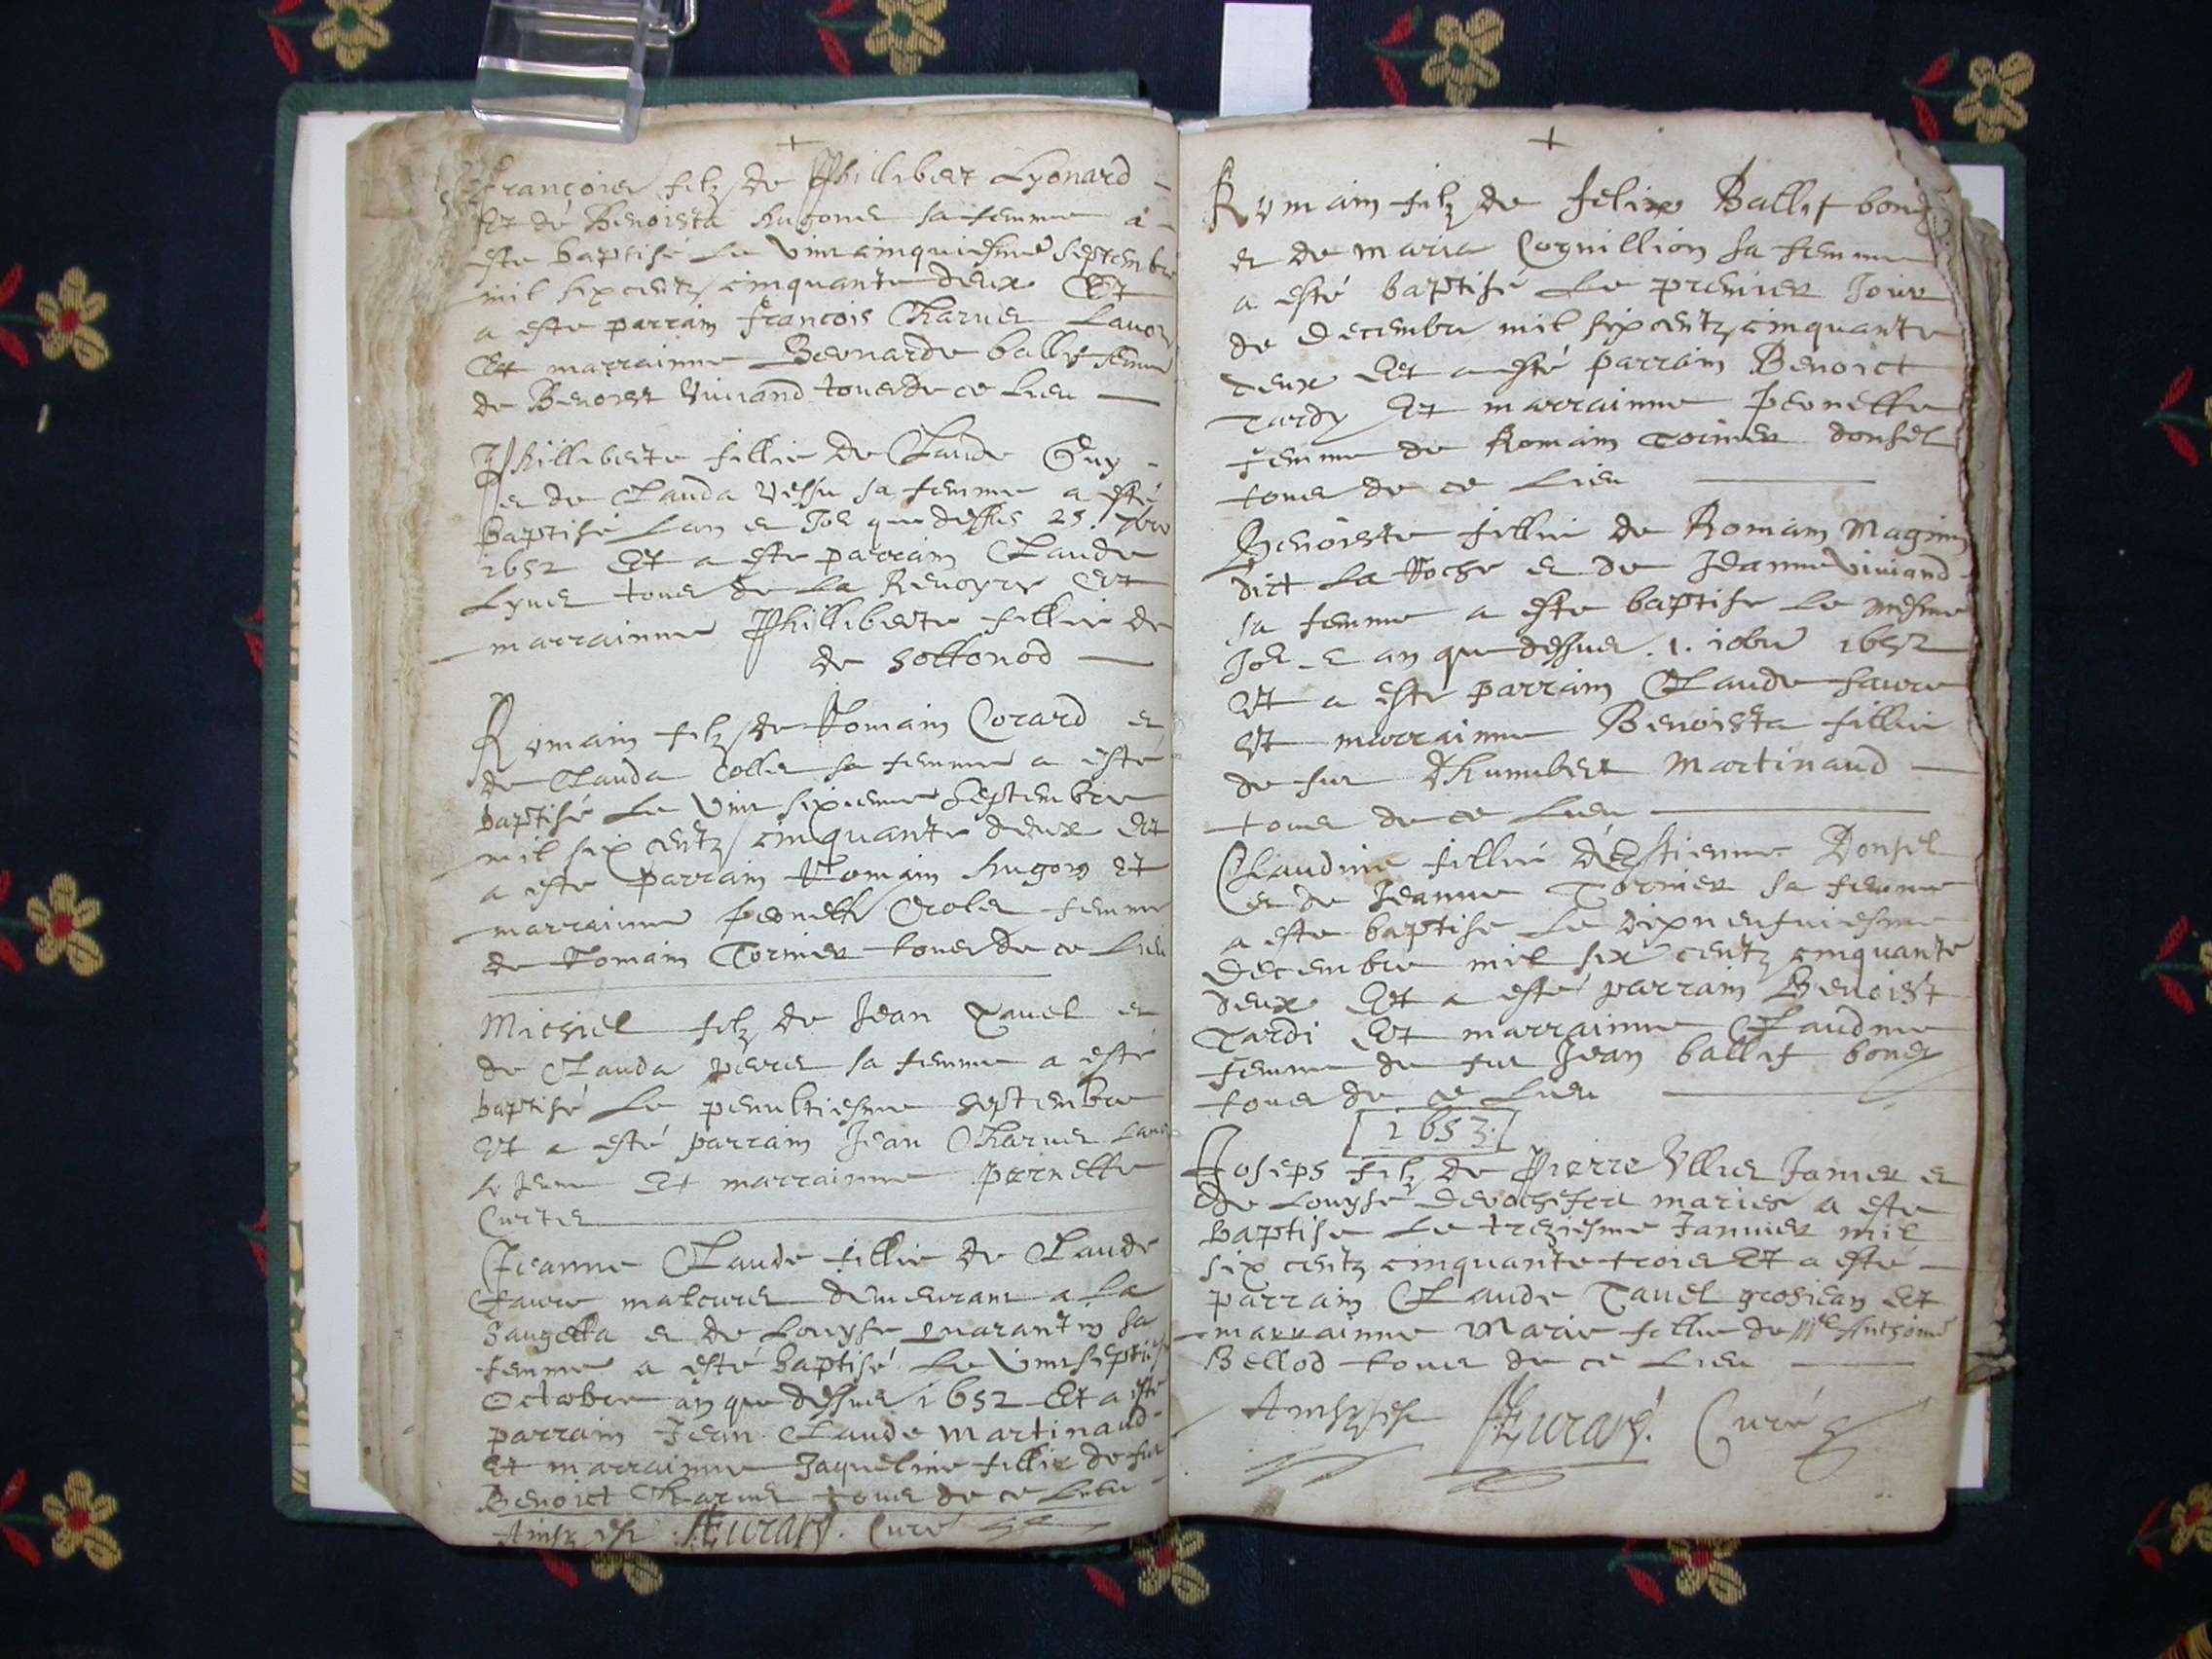 +
françois filz de Phillibert Lyonard -
Et de Benoista hugones sa femme a -
este baptisé Le vint cinquiesme septembre
mil six centz cinquante deux Et
a este parrain françois Charues
Et marrainne Bernarde ballif femme
de Benoist Viuiand tous de ce Lieu —
Philliberte fillie de Claude Guy -
et de Clauda sa femme a esté
baptisé Lan et Jor que dessus 25. 7bre
1652 Et a este parrain Claude
Lyues tous de La Reuoyre Et
marrainne Philliberte fillie de
de sottonod —
Romain filz de Romain Corard et
de Clauda Colles sa femme a esté
baptisé Le vint sixieme septembre
mil six centz cinquante deux Et
a este parrain Romain hugon Et
marrainne pernette femme
de Romain Tornier tous de ce Lieu
Michiel filz de Jean Tauel et
de Clauda sa femme a esté
baptisé Le penultiesme septembre
Et a esté parrain Jean Charues
Le Jeune Et marrainne pernette
Curtes
Jeanne Claude fillie de Claude
faure demeurant a La
saugetta et de Louyse quarantin sa
femme a esté baptisé Le vint septies
Octobre an que dessus 1652 Et a este
parrain Jean Claude Martinaud -
Et marrainne Jaqueline fillie de fut
Benoict Charues tous de ce Lieu -
Curé
+
Romain filz de felix Ballif
et de maria Cognillion sa femme
a esté baptisé Le premier Jour
de Decembre mil six centz cinquante
deux Et a esté parrain Benoict
Tardy Et marrainne pernette
femme de Romain Tornier donsel
tous de ce Lieu —
Benoiste fillie de Romain Magnin
dict La Roche et de Jeanne Viuiand -
sa femme a este baptise Le mesme
Jor et an que dessus .1. 10bre 1652
Et a este parrain Claude faure
Et marrainne Benoista fillie
de fut Dhumbert Martinaud —
tous de ce Lieu —
Claudine fillie d'Estienne Donsel
et de Jeanne Tornier sa femme
a este baptise Le dixneufuiesme
Decembre mil six centz cinquante
deux Et a esté parrain Benoist
Tardi Et marrainne Claudine
femme de fut Jean ballif
tous de ce Lieu —
[1653.]
Joseps filz de Pierre Ullies Janier et
de Louyse mariés a este
baptise Le treziesme Januier mil
six centz cinquante trois Et a esté -
parrain Claude Tauel grosiean Et
marrainne Marie fillie de Mre Anthoine
Bellod tous de ce Lieu —
Curé